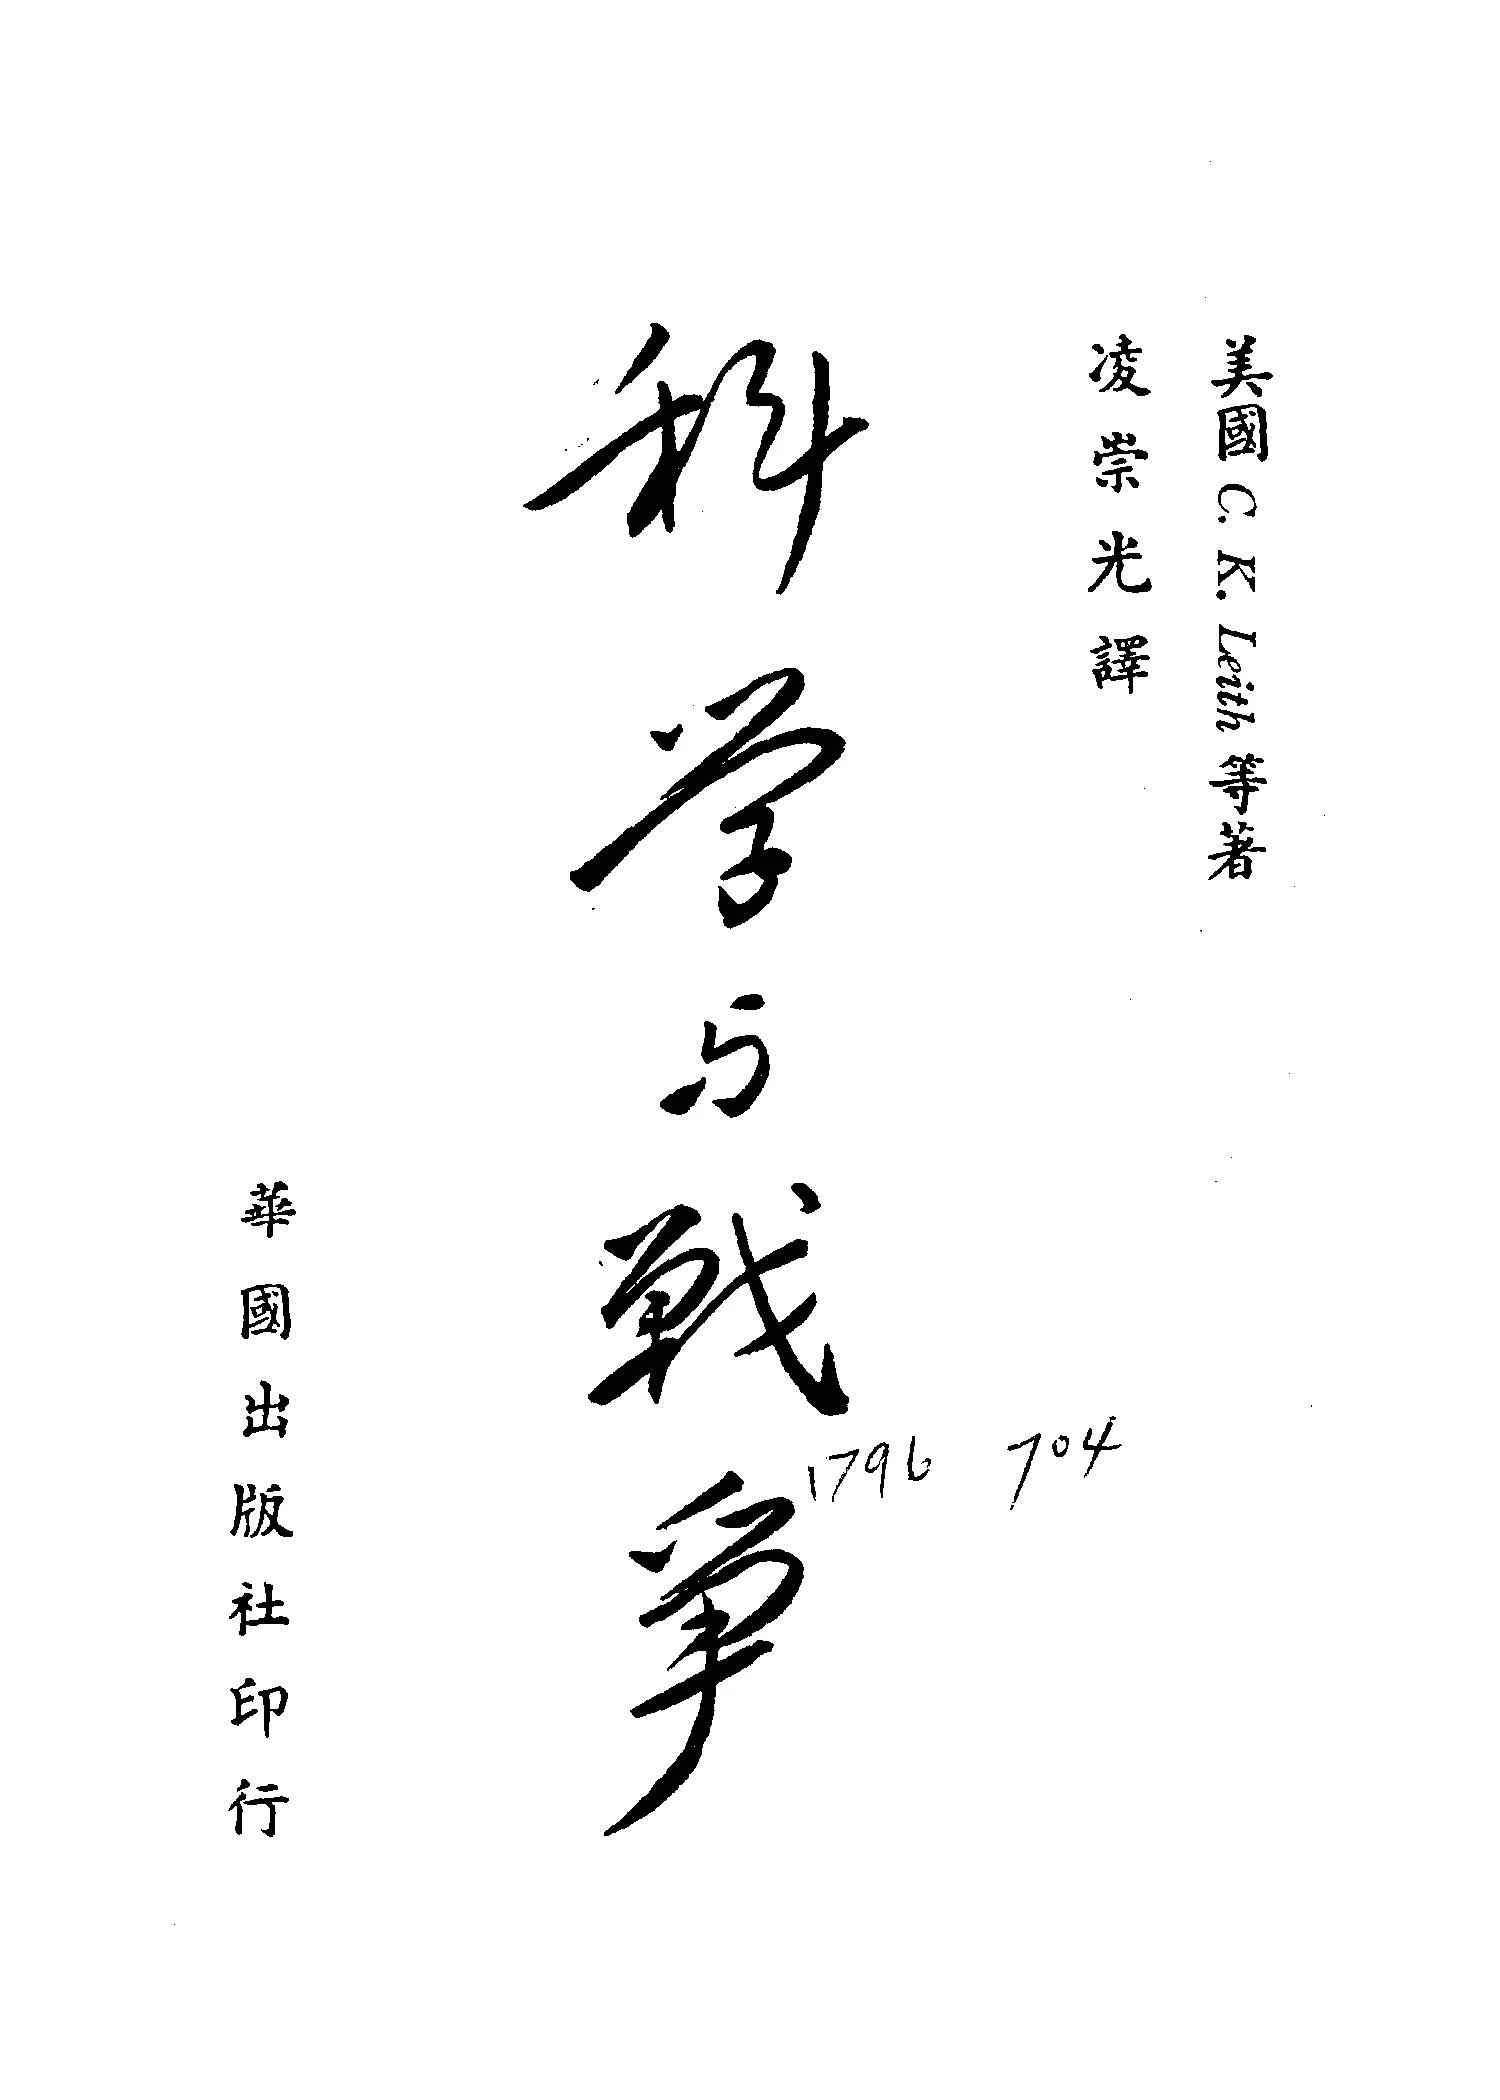 美國 C. K. Leith 等著
凌崇光譯
科学与戰爭
1796 704
華國出版社印行